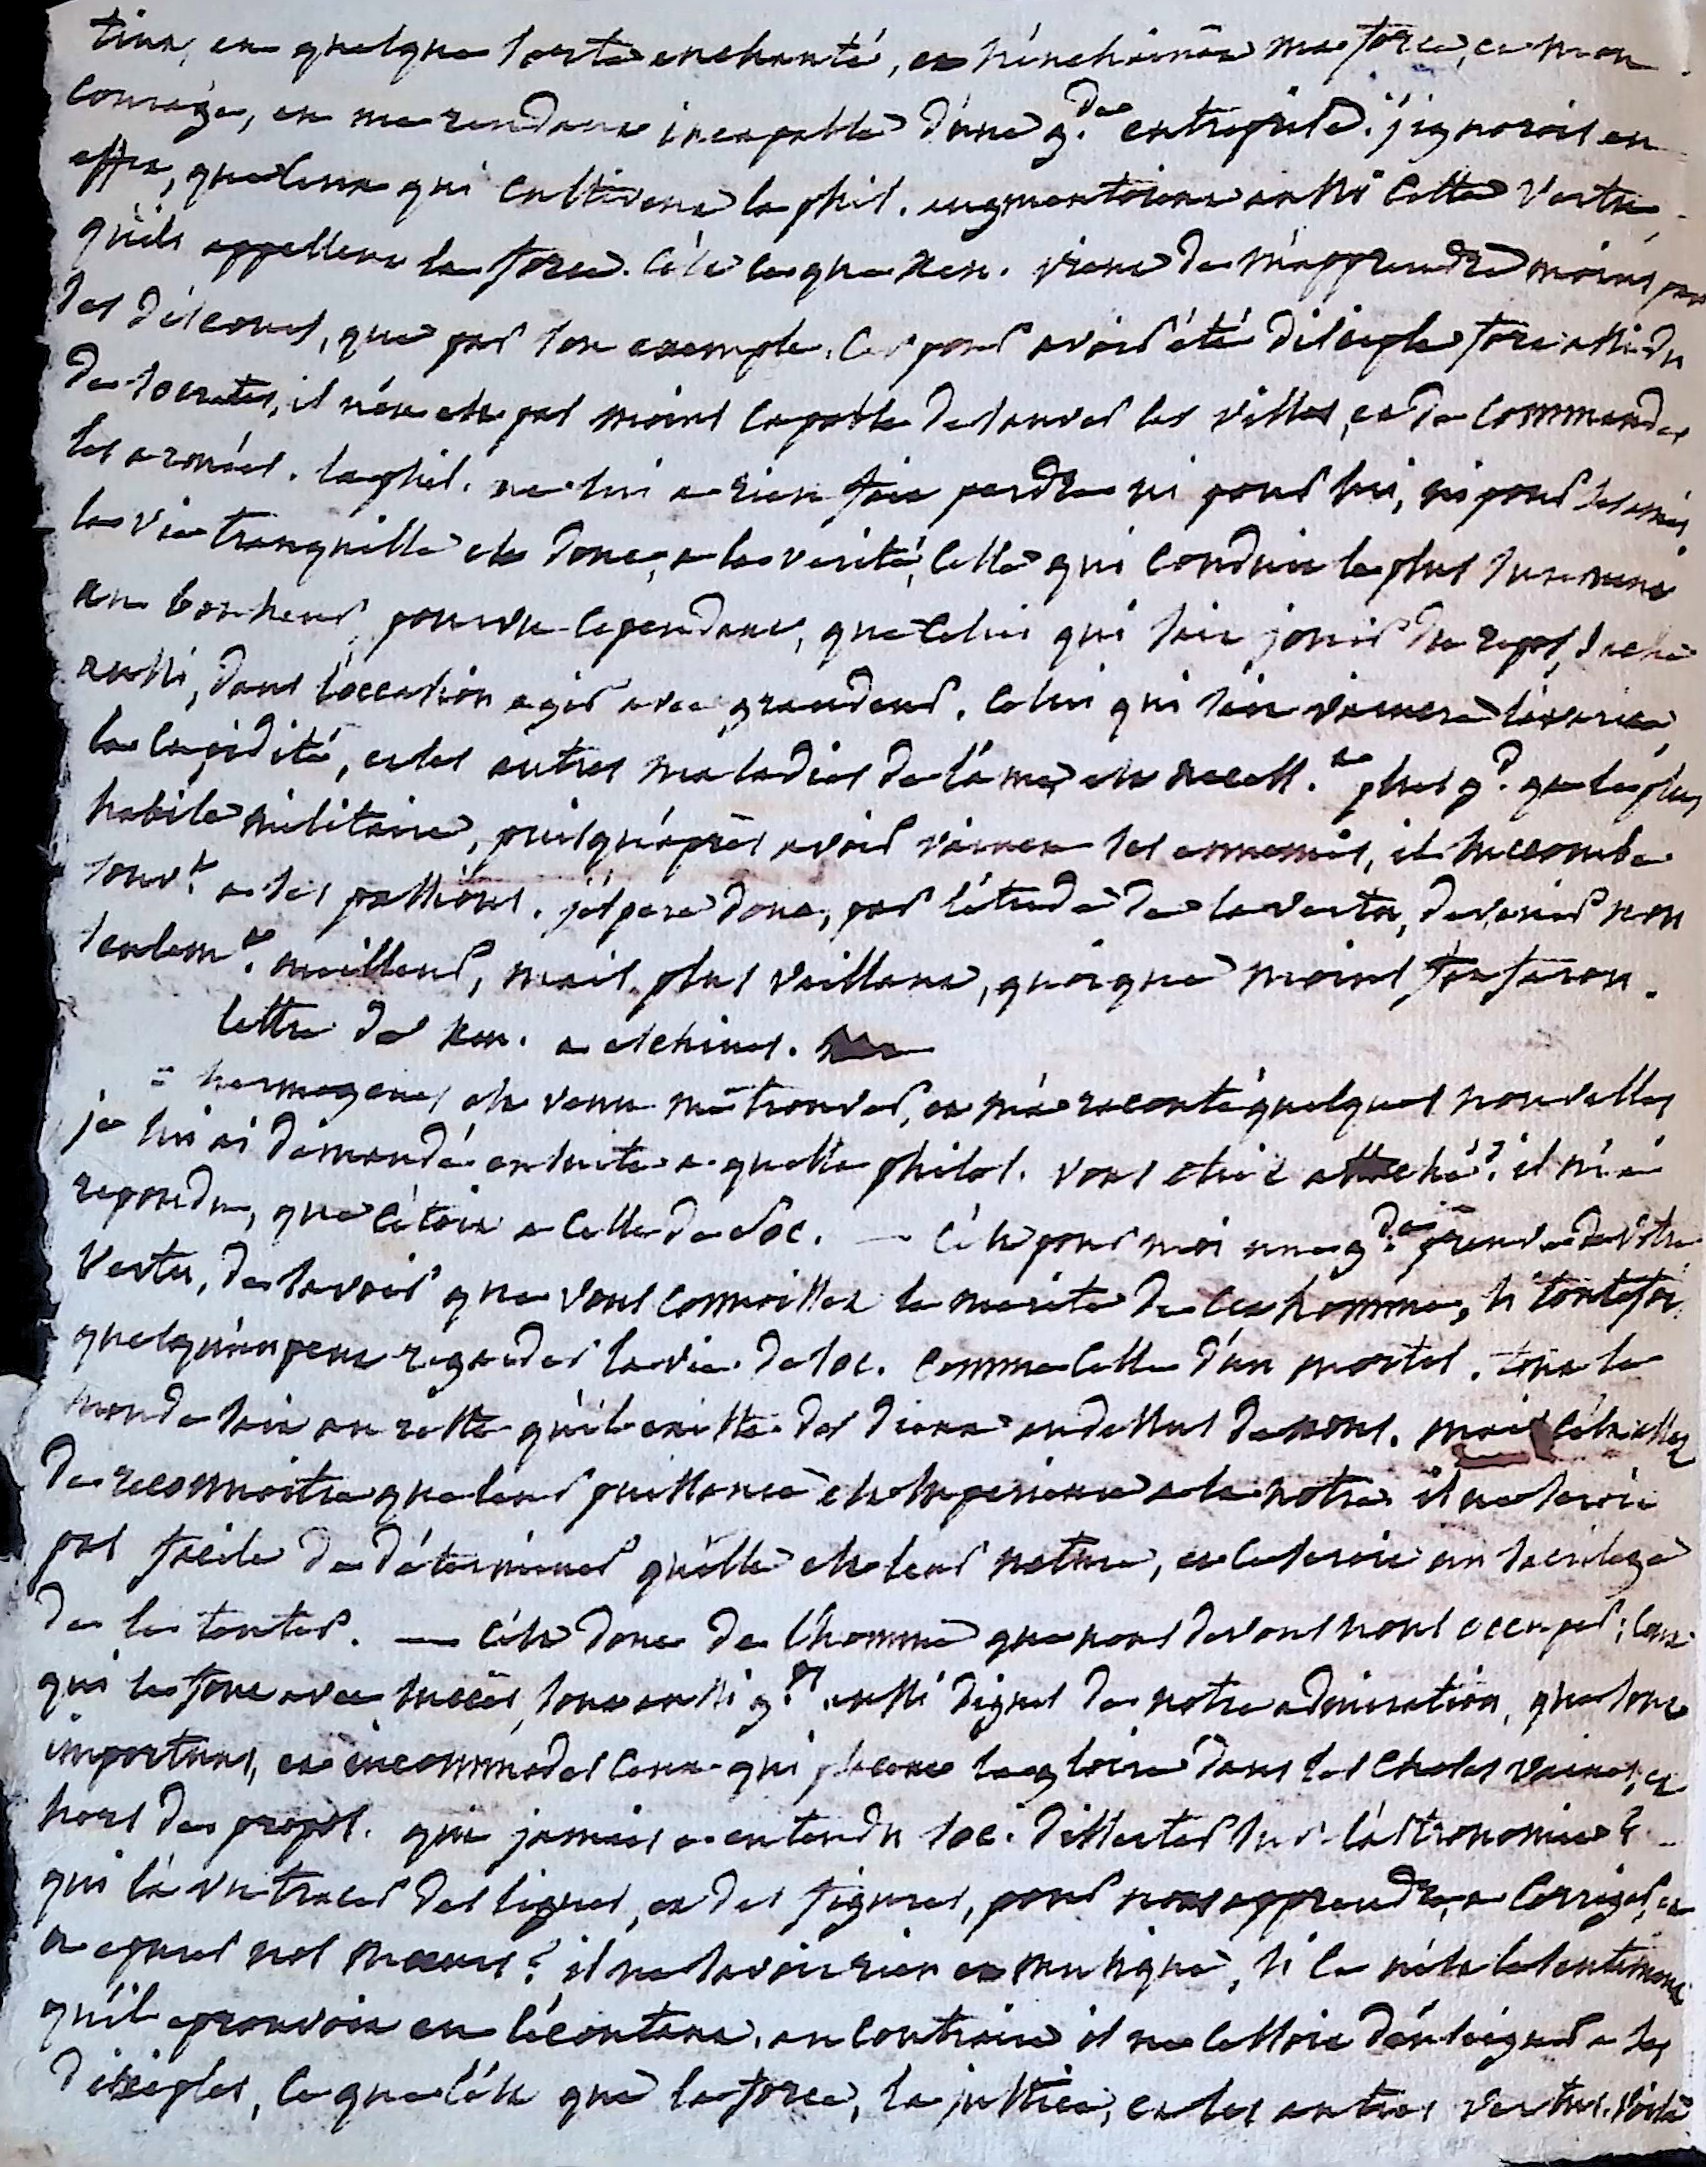 tint, en quelque sorte enchanté, et n'enchainât ma force, et mon
courage, en me rendant incapable d'une g.de entreprise. j'ignorois en
effet, que ceux qui cultivent la phil. augmentoient aussi cette vertu,
qu'ils appellent la force. c'est ce que xen. vient de m'apprendre moins par
ses discours, que par son exemple. car pour avoir été disciple fort assidu
de socrates, il n'en est pas moins capable de sauver les villes, et de commander
les armées. la phil. ne lui a rien fait perdre ni pour lui, ni pour ses amis.
la vie tranquille est donc, a la verité, celle qui conduit le plus surement
au bonheur, pourvu cependant, que celui qui sait jouir du repos, sache
aussi, dans l'occasion agir avec grandeur. celui qui sait vaincre l'avarice,
la cupidité, et les autres maladies de l'ame, est necess.nt plus g.d que le plus
habile militaire, puisqu'après avoir vaincu ses ennemis, il succombe
souv.t a ses passions. j'espere donc, par l'etude de la vertu, devenir non
seulem.t meilleur, mais plus vaillant, quoique moins fanfaron.
lettre de xen. a eschines.
" hermogenes est venu me trouver, et m'a raconté quelques nouvelles
je lui ai demandé ensuite a quelle philos. vous etiez attaché? il m'a
repondu, que c'étoit a celle de soc. — c'est pour moi une g.de preuve de vôtre
vertu, de savoir que vous connoissez le merite de cet homme, si toutefois
quelqu'un peut regarder la vie de soc. comme celle d'un mortel. tout le
monde sait au reste qu'il existe des dieux au dessus de nous. mais c'est assez
de reconnoitre que leur puissance est superieure a la notre. il ne seroit
pas facile de déterminer qu'elle est leur nature, et ce seroit un sacrilege
de le tenter. — c'est donc de l'homme que nous devons nous occuper; ceux
qui le font avec succès, sont aussi g.ds aussi dignes de notre admiration, que sont
importuns, et incommodes ceux qui placent la gloire dans les choses vaines, et
hors de propos. qui jamais a entendu soc. disserter sur l'astronomie?
qui l'a vu tracer des lignes, et des figures, pour nous apprendre, a corriger, et
a epurer nos moeurs? il ne savoit rien en musique, si ce n'est le sentiment
qu'il eprouvoit en l'écoutant. au contraire il ne cessoit d'enseigner a ses
disciples, ce que c'est que la force, la justice, et les autres vertus. voila